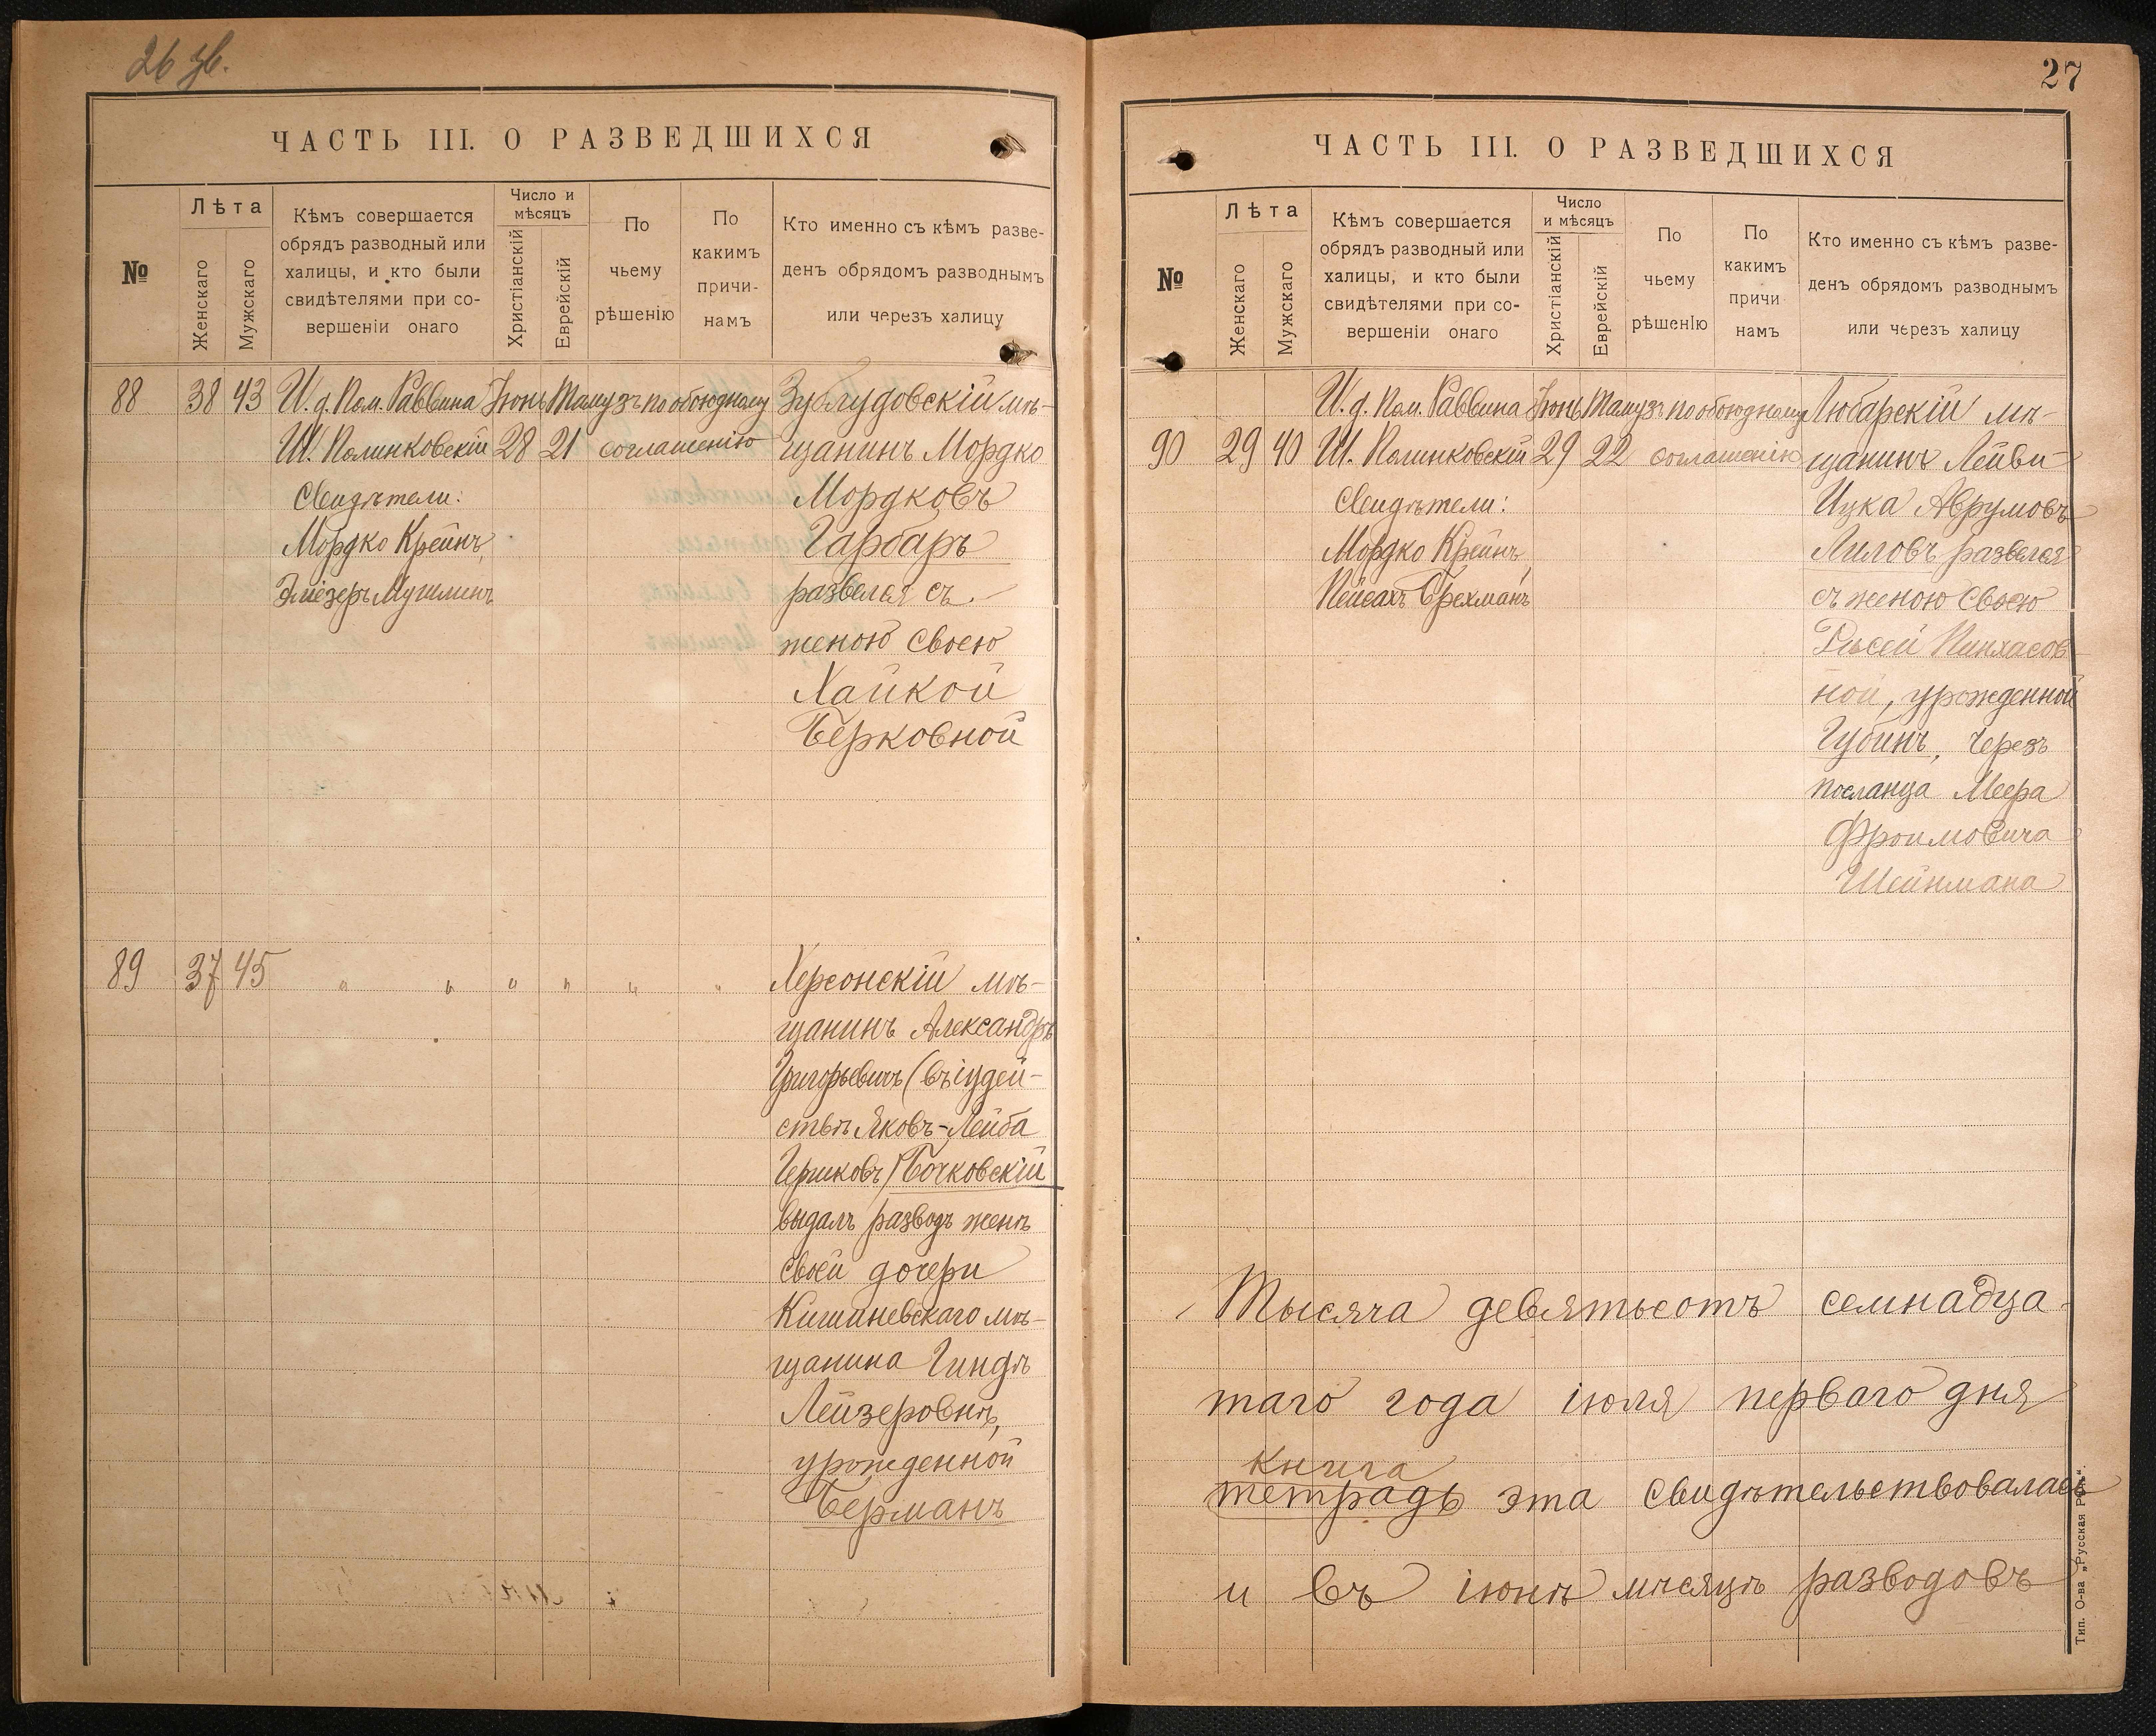 26 об.
ЧАСТЬ III. О РАЗВЕДШИХСЯ
№
Лѣта
Женскаго
Мужскаго
Кѣмъ совершается
обрядъ разводный или
халицы, и кто были
свидѣтелями при со-
вершеніи онаго
Число и
мѣсяцъ
Христіанскій
Еврейскій
По
чьему
рѣшенію
По
какимъ
причи-
намъ
Кто именно съ кѣмъ разве-
денъ обрядомъ разводнымъ
или черезъ халицу
88 38 43 И. д. Пом. Раввина Іюнь Тамузъ по обоюдному Зублудовскій мѣ-
Ш. Полинковскій 28 21 соглашенію щанинъ Мордко
Свидѣтели: Мордковъ
Мордко Крейнъ, Гарбаръ
Эліезеръ развелся съ
женою своею
Хайкой
Берковной
89 37 45 " " " " " " Херсонскій мѣ-
щанинъ Александръ
Григорьевичъ (въ іудей-
ствѣ Яковъ-Лейба
Гершковъ) Бочковскій
выдалъ разводъ женѣ
своей дочери
Кишиневскаго мѣ-
щанина Гиндѣ
Лейзеровнѣ,
урожденной
Берманъ
27
ЧАСТЬ III. О РАЗВЕДШИХСЯ
№
Лѣта
Женскаго
Мужскаго
Кѣмъ совершается
обрядъ разводный или
халицы, и кто были
свидѣтелями при со-
вершеніи онаго
Число
и мѣсяцъ
Христіанскій
Еврейскій
По
чьему
рѣшенІю
По
какимъ
причи
намъ
Кто именно съ кѣмъ разве-
денъ обрядомъ разводнымъ
или черезъ халицу
И. д. Пом. Раввина Іюнь Тамузъ по обоюдному Любарскій мѣ-
90 29 40 Ш. Полинковскій 29 22 соглашенію щанинъ Лейви-
Свидѣтели: Ицка Аврумовъ
Мордко Крейнъ, Лиловъ развелся
Пейсахъ Брехманъ съ женою своею
Рысей Пинхасов-
ной, урожденной
Губинъ, черезъ
посланца Меера
Фроимовича
Шейнмана
Тысяча девятьсотъ семнадца-
таго года іюля перваго дня
книга
тетрадь эта свидѣтельствовалась
и въ іюнѣ мѣсяцѣ разводовъ
Тип. О-ва „Русская Рѣчь".